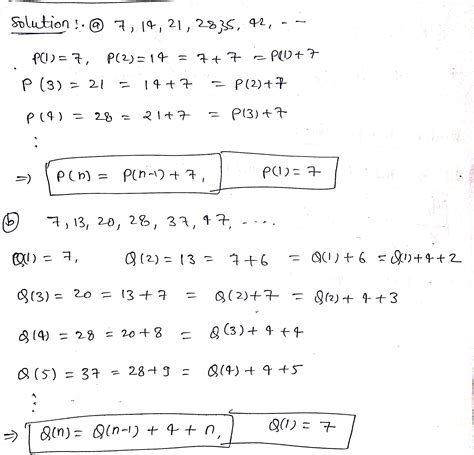 Solution :. (a) 7, 14, 21, 28, 35, 42, ---
P(1) = 7, P(2) = 14 = 7+7 = P(1)+7
P(3) = 21 = 14+7 = P(2)+7
P(4) = 28 = 21+7 = P(3)+7
⋮
⇒ P(n) = P(n-1) + 7, P(1) = 7
(b) 7, 13, 20, 28, 37, 47, ....
Q(1) = 7, Q(2) = 13 = 7+6 = Q(1)+6 = Q(1)+4+2
Q(3) = 20 = 13+7 = Q(2)+7 = Q(2)+4+3
Q(4) = 28 = 20+8 = Q(3)+4+4
Q(5) = 37 = 28+9 = Q(4)+4+5
⋮
⇒ Q(n) = Q(n-1) + 4 + n, Q(1) = 7